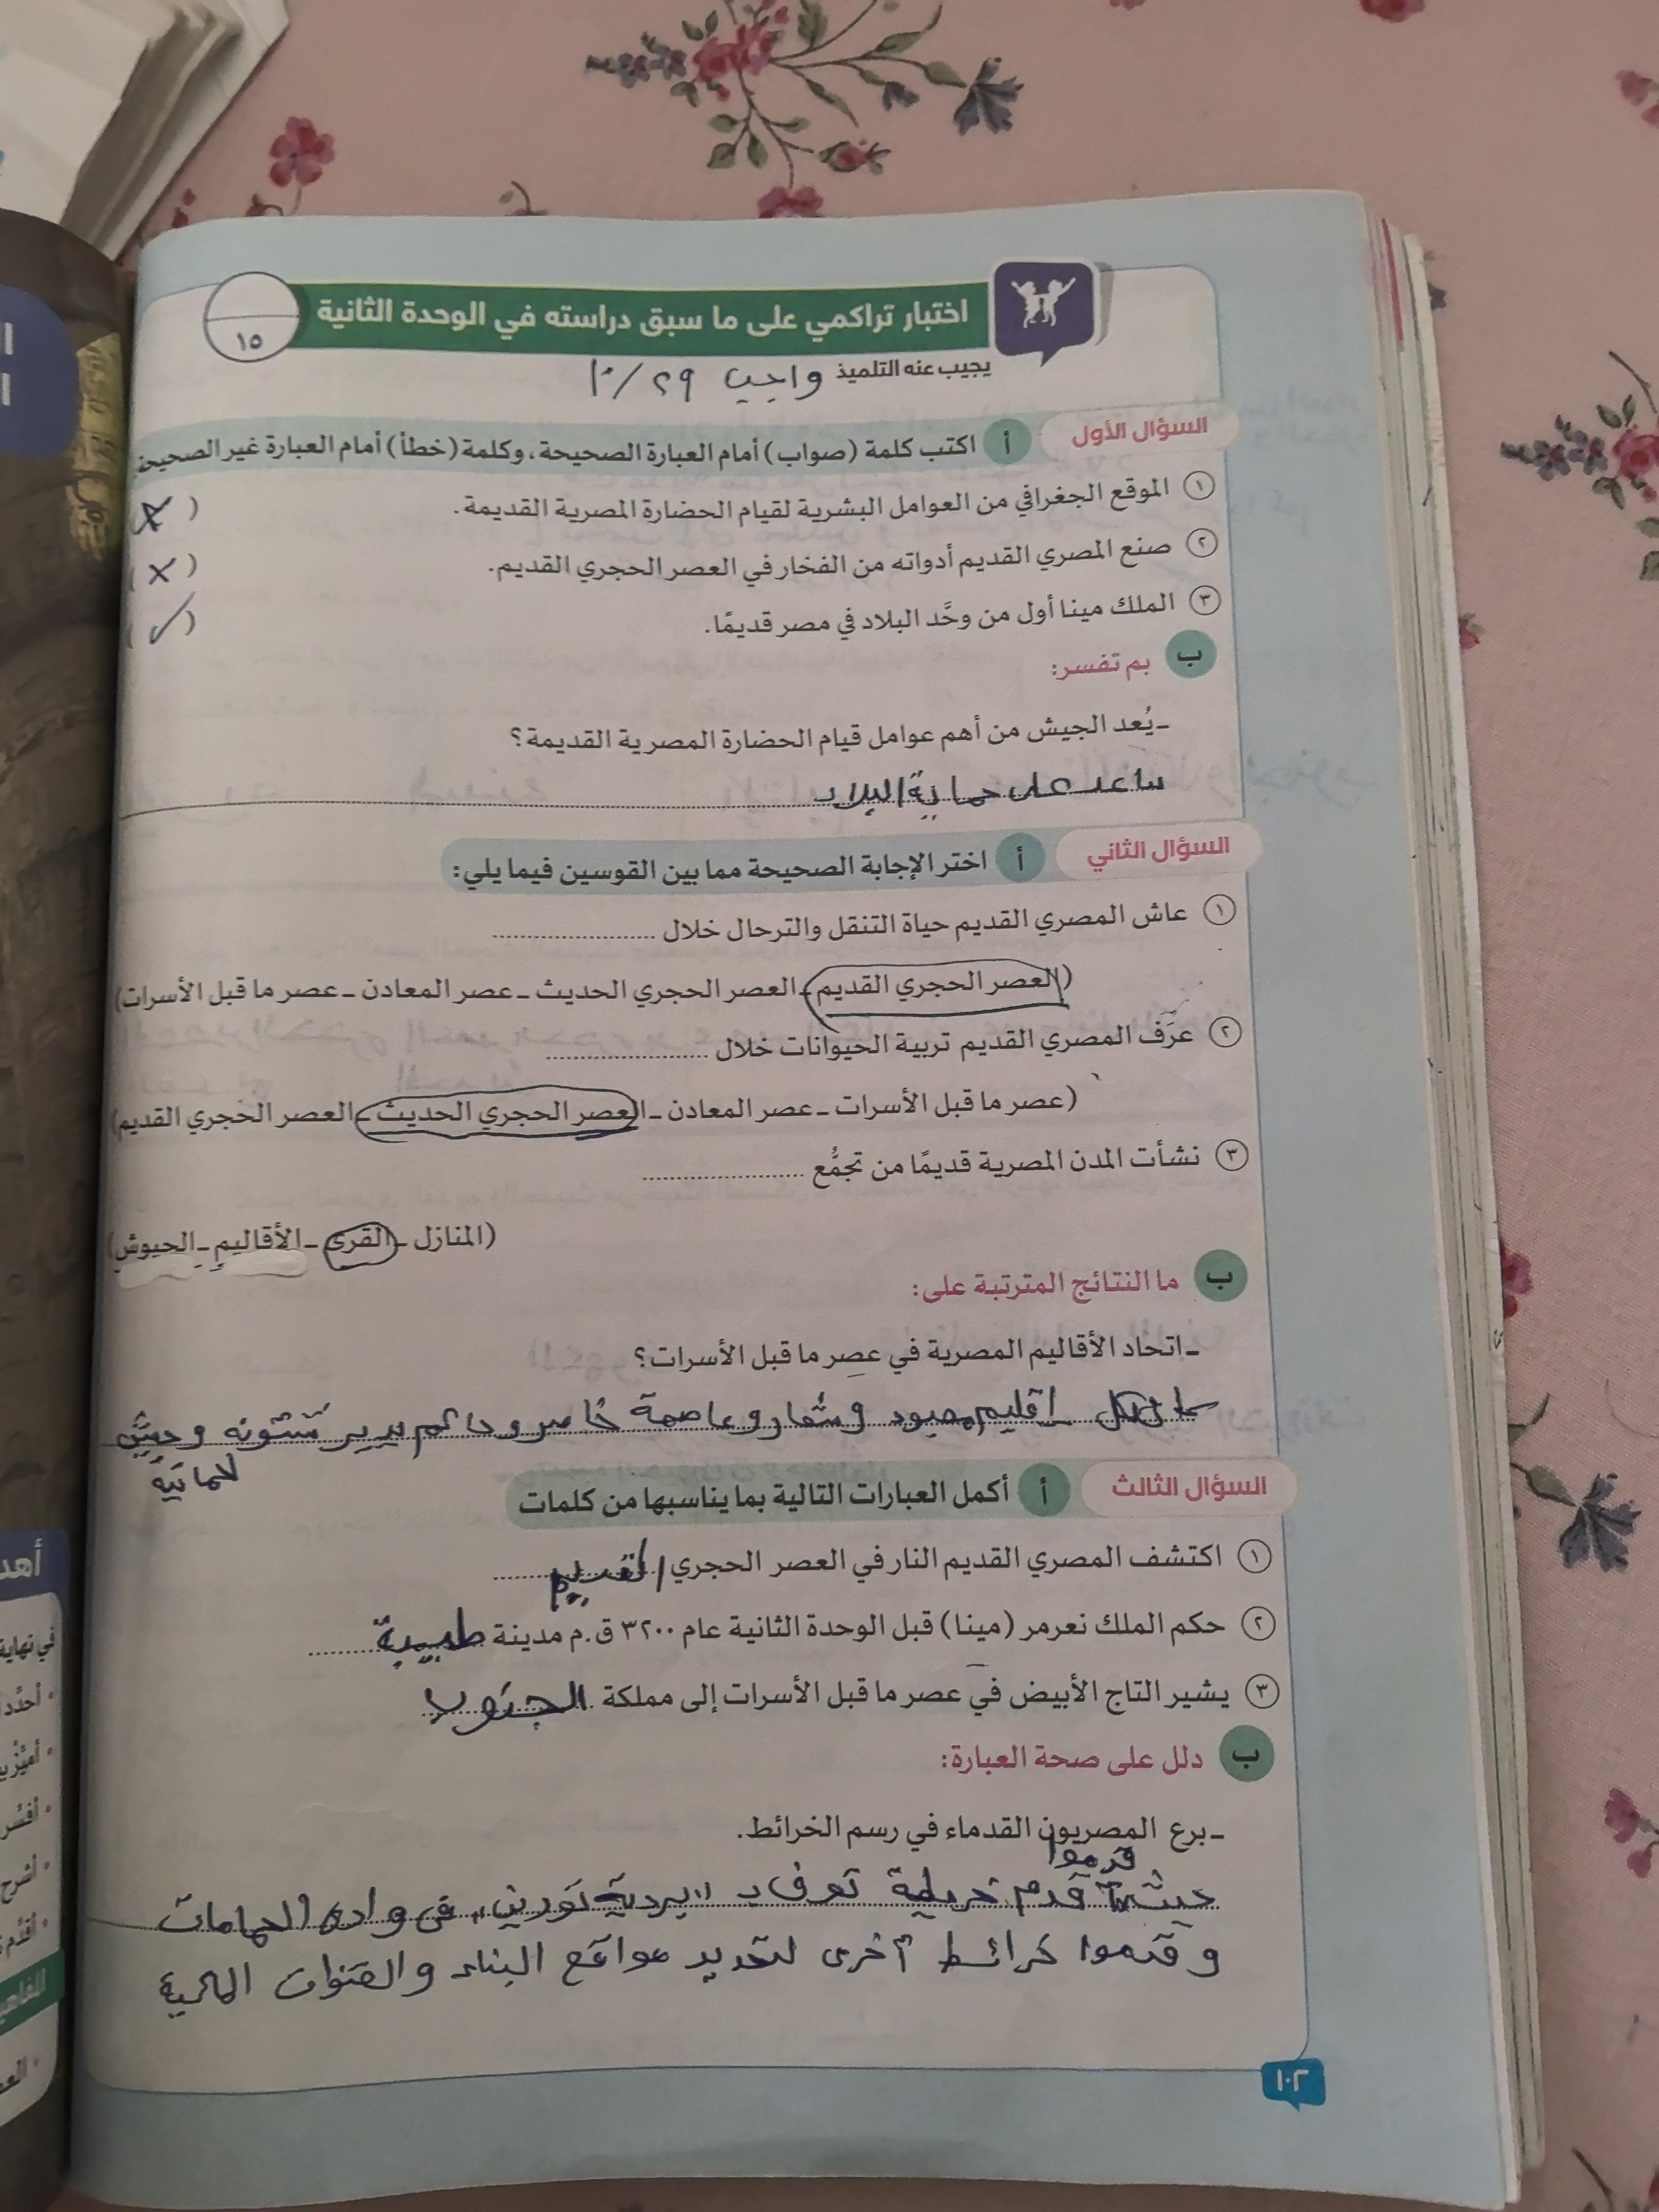 اختبار تراكمي على ما سبق دراسته في الوحدة الثانية
١٥
يجيب عنه التلميذ واجب ٢٩/١٠
السؤال الأول أ اكتب كلمة (صواب) أمام العبارة الصحيحة، وكلمة (خطأ) أمام العبارة غير الصحيحة
١ الموقع الجغرافي من العوامل البشرية لقيام الحضارة المصرية القديمة. (X
٢ صنع المصري القديم أدواته من الفخار في العصر الحجري القديم. (X)
٣ الملك مينا أول من وحَّد البلاد في مصر قديمًا. (✓)
ب بم تفسر:
ـ يُعد الجيش من أهم عوامل قيام الحضارة المصرية القديمة؟
ساعد على حماية البلاد
السؤال الثاني أ اختر الإجابة الصحيحة مما بين القوسين فيما يلي:
١ عاش المصري القديم حياة التنقل والترحال خلال ............
(العصر الحجري القديم ـ العصر الحجري الحديث ـ عصر المعادن ـ عصر ما قبل الأسرات)
٢ عرَف المصري القديم تربية الحيوانات خلال ............
(عصر ما قبل الأسرات ـ عصر المعادن ـ العصر الحجري الحديث ـ العصر الحجري القديم)
٣ نشأت المدن المصرية قديمًا من تجمُّع ............
(المنازل ـ القرى ـ الأقاليم ـ الجيوش)
ب ما النتائج المترتبة على:
ـ اتحاد الأقاليم المصرية في عصر ما قبل الأسرات؟
لكل إقليم معبود وشعار وعاصمة خاصر وحاكم يدير شئونه وجيش
لحماية
السؤال الثالث أ أكمل العبارات التالية بما يناسبها من كلمات
١ اكتشف المصري القديم النار في العصر الحجري القديم
٢ حكم الملك نعرمر (مينا) قبل الوحدة الثانية عام ٣٢٠٠ ق.م مدينة طيبة
٣ يشير التاج الأبيض في عصر ما قبل الأسرات إلى مملكة الجنوب
ب دلل على صحة العبارة:
ـ برع المصريون القدماء في رسم الخرائط.
قدموا
حيث قدم خريطة تعرف بـ "بردية تورين" في وادي الحمامات
وقدموا خرائط أخرى لتحديد مواقع البناء والقنوات المائية
١٠٢
أهد
في نهاية
• أحدِّد
• أميِّز بي
• أفسِّر
• أشرح
• أقدِّم